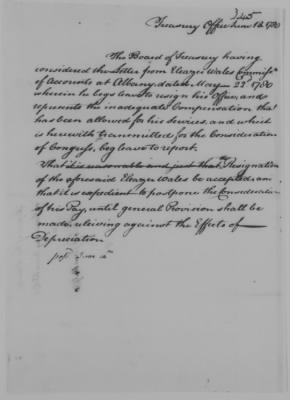 345
Treasury Office June 12 1780
The Board of Treasury having
considered the Letter from Eleazer Wales Commissr
of Accounts at Albany, dated May 22d 1780
wherein he begs leave to resign his Office, and
represents the inadequate Compensation that
has been allowed for his Services, and which
is herewith transmitted for the Consideration
of Congress, beg leave to report.
That it is reasonable and just that Resignation
of the aforesaid Eleazer Wales be accepted, and
that it is expedient to postpone the Consideration
of his Pay, until general Provision shall be
made, relieving against the Effects of
Depreciation